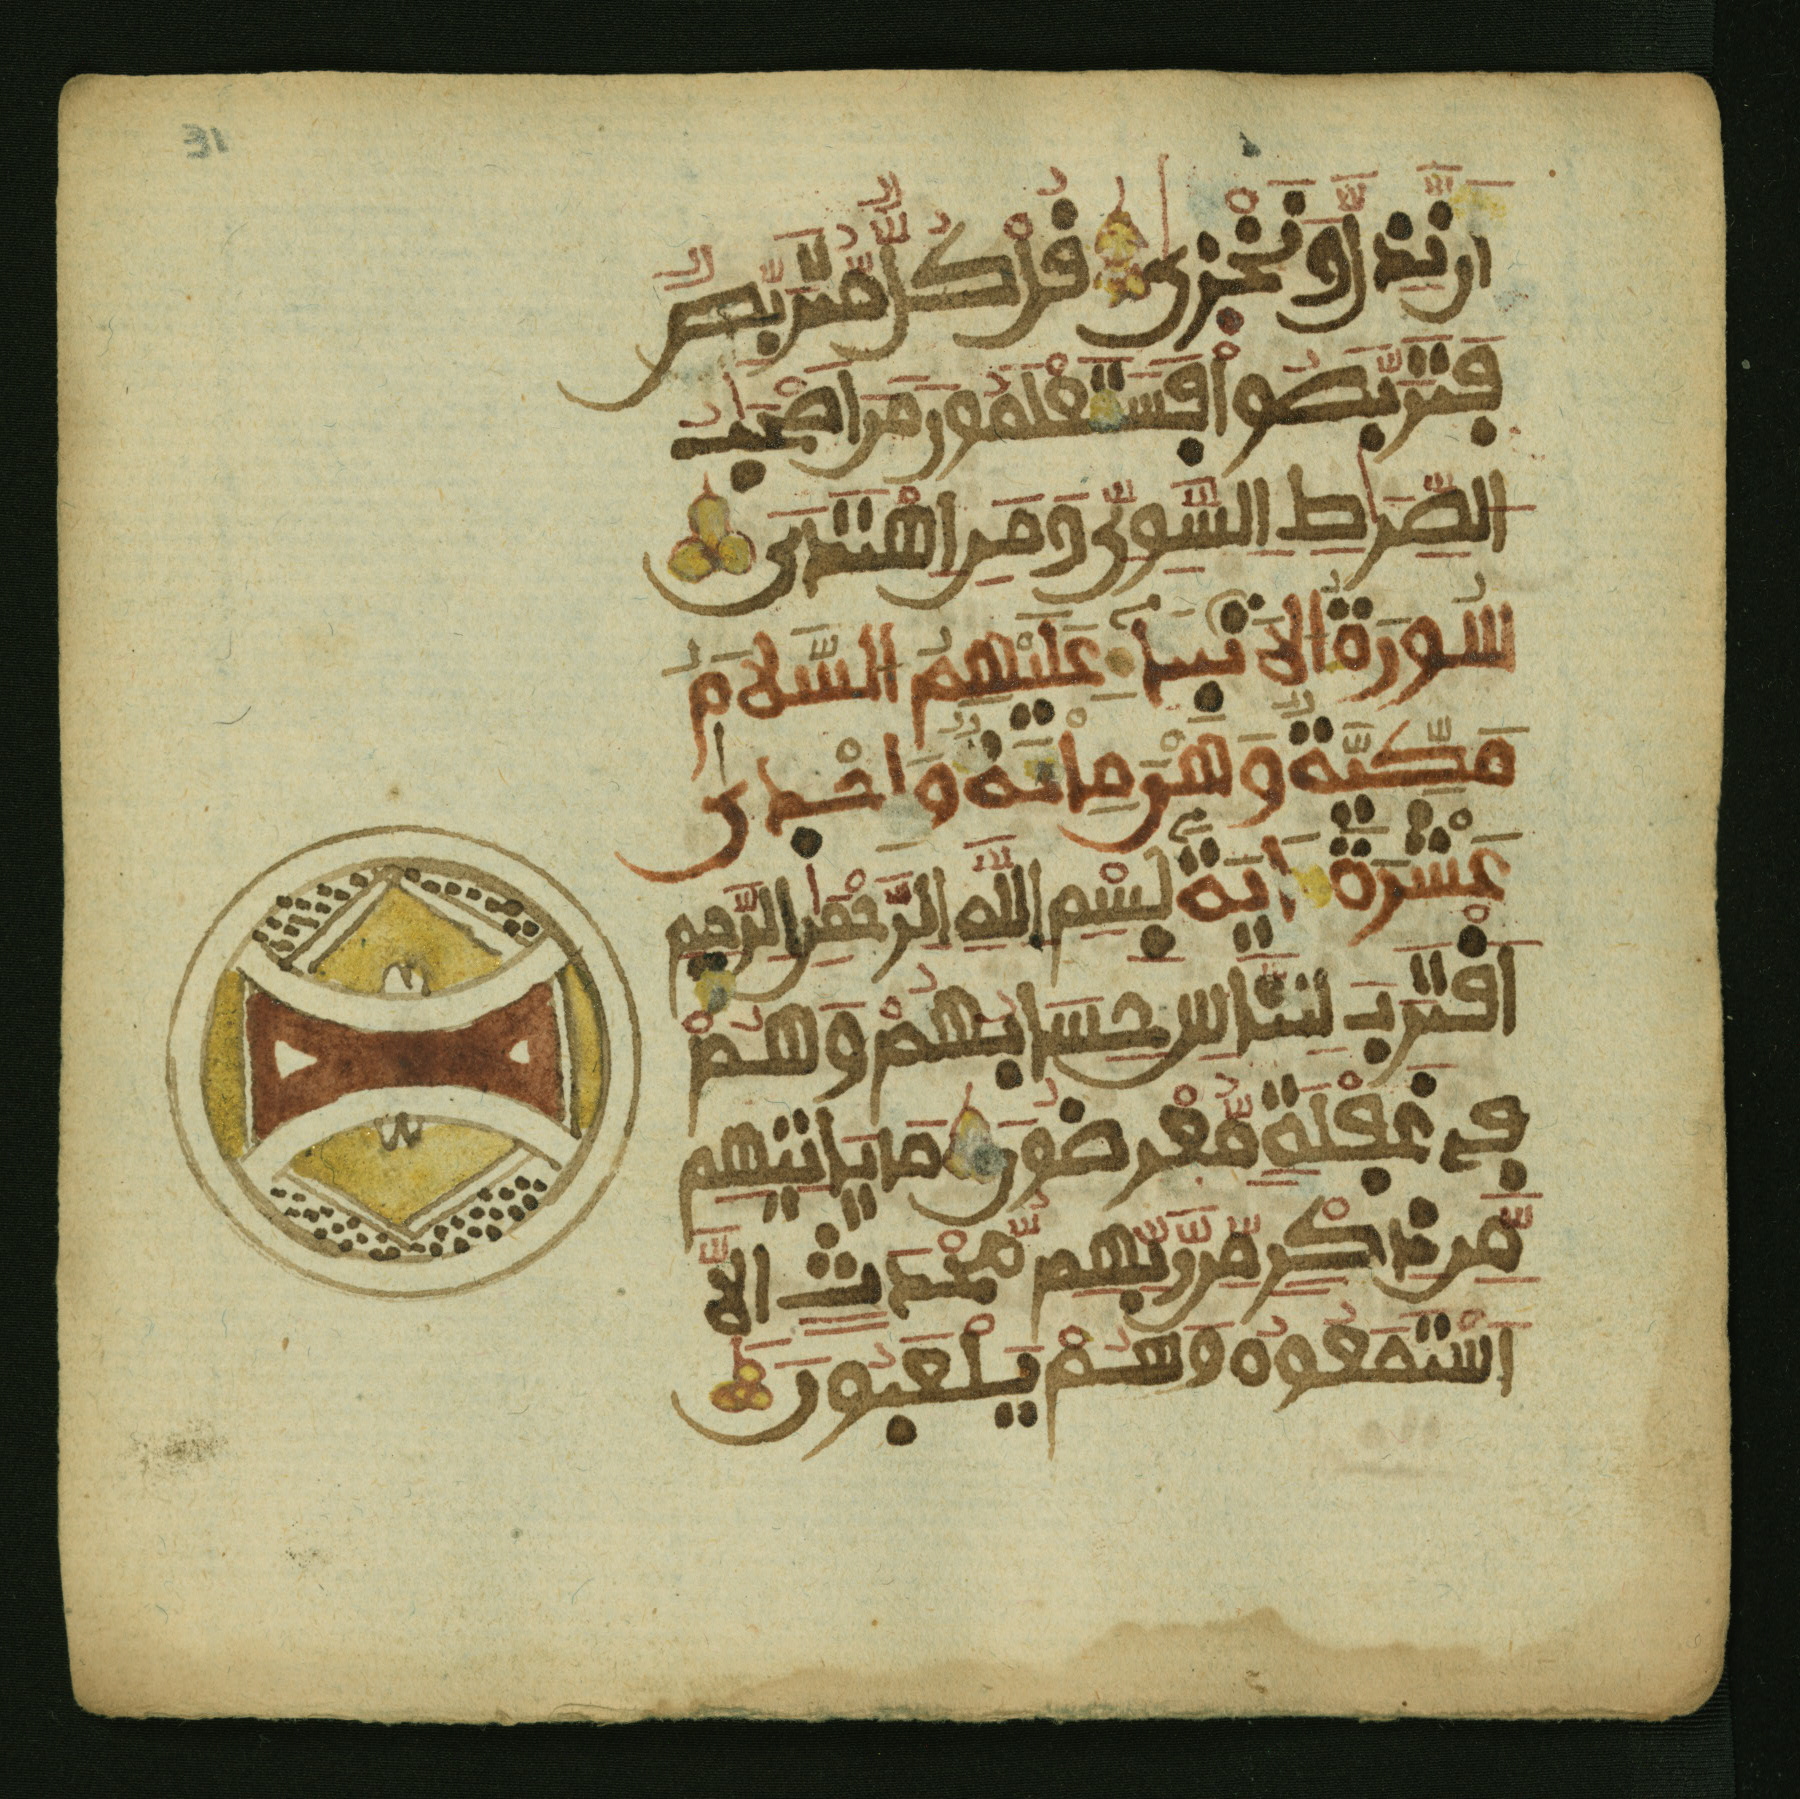 31
ان نذل ونخزى قل كل متربص
فتربصوا فستعلمون من اصحب
الصرط السوي ومن اهتدى
سورة الانبيا عليهم السلام
مكية وهي ماية واحدى
عشرة اية بسم الله الرحمن الرحيم
اقترب للناس حسابهم وهم
في غفلة معرضون ما ياتيهم
من ذكر من ربهم محدث الا
استمعوه وهم يلعبون